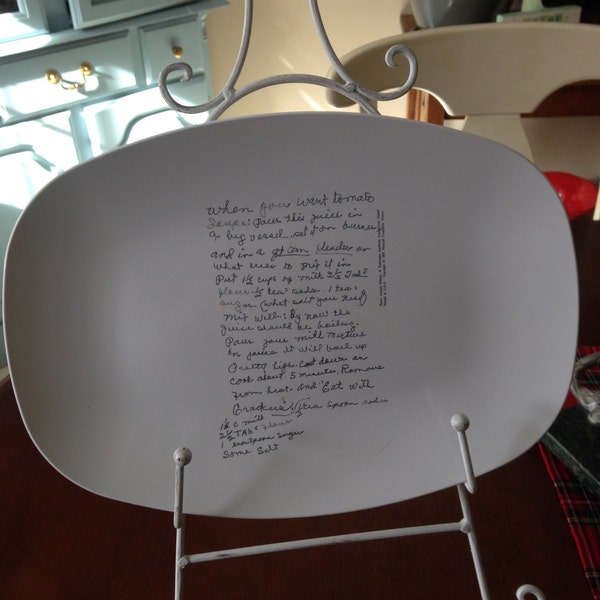 When you want tomato
Soupe: Pour this juice in
a big vessel. set it on burner
and in a qt can blender or
What ever to put it in
Put 1½ cups of milk 2½ Tabl
flour ½ tea soda. 1 tea
sugar. (What salt you need)
Mix Well: By now the
juice should be boiling.
Pour your milk mixture
in juice it will boil up
Pretty high. Cool down an
cook about 5 minutes. Remove
from heat. and "Eat with
Crackers" ½ tea spoon sodia
1½ C milk
2½ TABs flour
1 teaspoon sugar
Some Salt